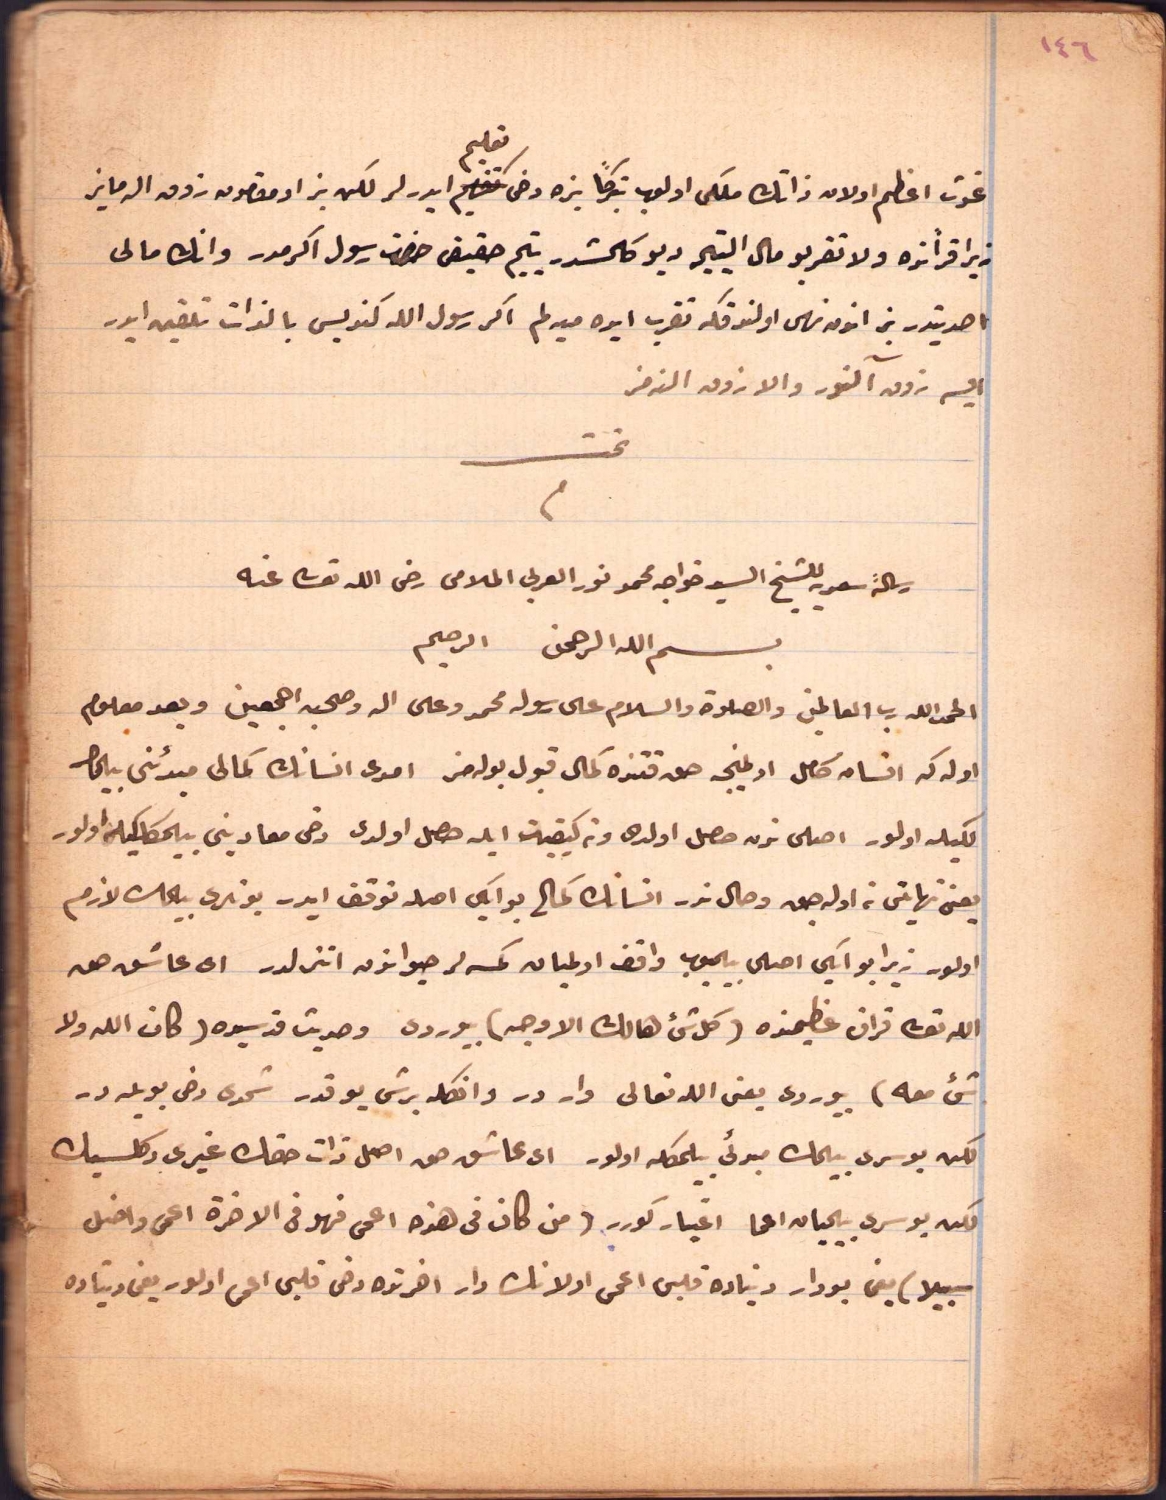 ١٤٦
تعليم
غوث اعظم اولان ذاتك ملكى اولوب تبركاً بزه دخى ايدرلر لكن بز او مقامدن ذوق اله مايز
زيرا قرأنده ولا تقربو مال اليتيم ديو كلمشدر يتيم حقيقى حضرت رسول اكرمدر وانك مالى
احديتدر بز اندن نهى اولندقكه تقرب ايده ميه لم اكر رسول الله كنديسى بالذات تلقين ايدر
ايسه ذوق آلنور والا ذوق النمز
تمت
م
رسالۀ للشيخ السيد خواجه محمد نور العربى الملامى رضى الله تعالى عنه
بسم الله الرحمن الرحيم
الحمد لله رب العالمين والصلوة والسلام على رسوله محمد وعلى اله وصحبه اجمعين وبعد معلوم
اوله كه انسان كامل اولمينجه حق قتنده كمال قبول بوله مز امدى انسانك كمالى مبدئنى بيلمك
لكيله اولور اصلى ندن حاصل اولدى ونه كيفيت ايله حاصل اولدى دخى معادينى بيلمكلكيله اولور
يعنى نهايتى نه اوله جق وحال ندر انسانك كمالى بو ايكى اصله توقف ايدر بونلرى بيلمك لازم
اولور زيرا بو ايكى اصلى بيلميوب واقف اولميان كمسه لر حيواندن انزلدر اى عاشق حق
الله تعالى قران عظيمنده (كل شئ هالك الا وجهه) بيوردى وحديث قدسيده (كان الله ولا
شئ معه) بيوردى يعنى الله تعالى وار در وانكله برشى يوقدر شمدى دخى بويله در
لكن بو سرى بيلمك مبدئى بيلمكله اولور اى عاشق حق اصل ذات حقك غيرى دكلسك
لكن بو سرى بيلميان اعما اغيار كورر (من كان فى هذه اعمى فهو فى الاخرة اعمى واضل
سبيلا) يعنى بو دار دنياده قلبى اعمى اولانك دار اخرتده دخى قلبى اعمى اولور يعنى دنياده